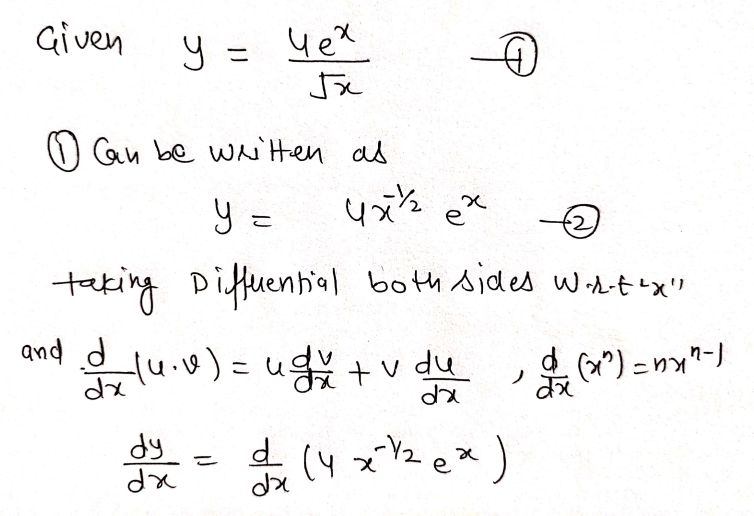 Given y = 4e^x / √x —①
① Can be written as
y = 4x^{-1/2} e^x —②
taking Differential both sides w.r.t "x"
and d/dx (u.v) = u dv/dx + v du/dx , d/dx (x^n) = nx^{n-1}
dy/dx = d/dx (4 x^{-1/2} e^x)